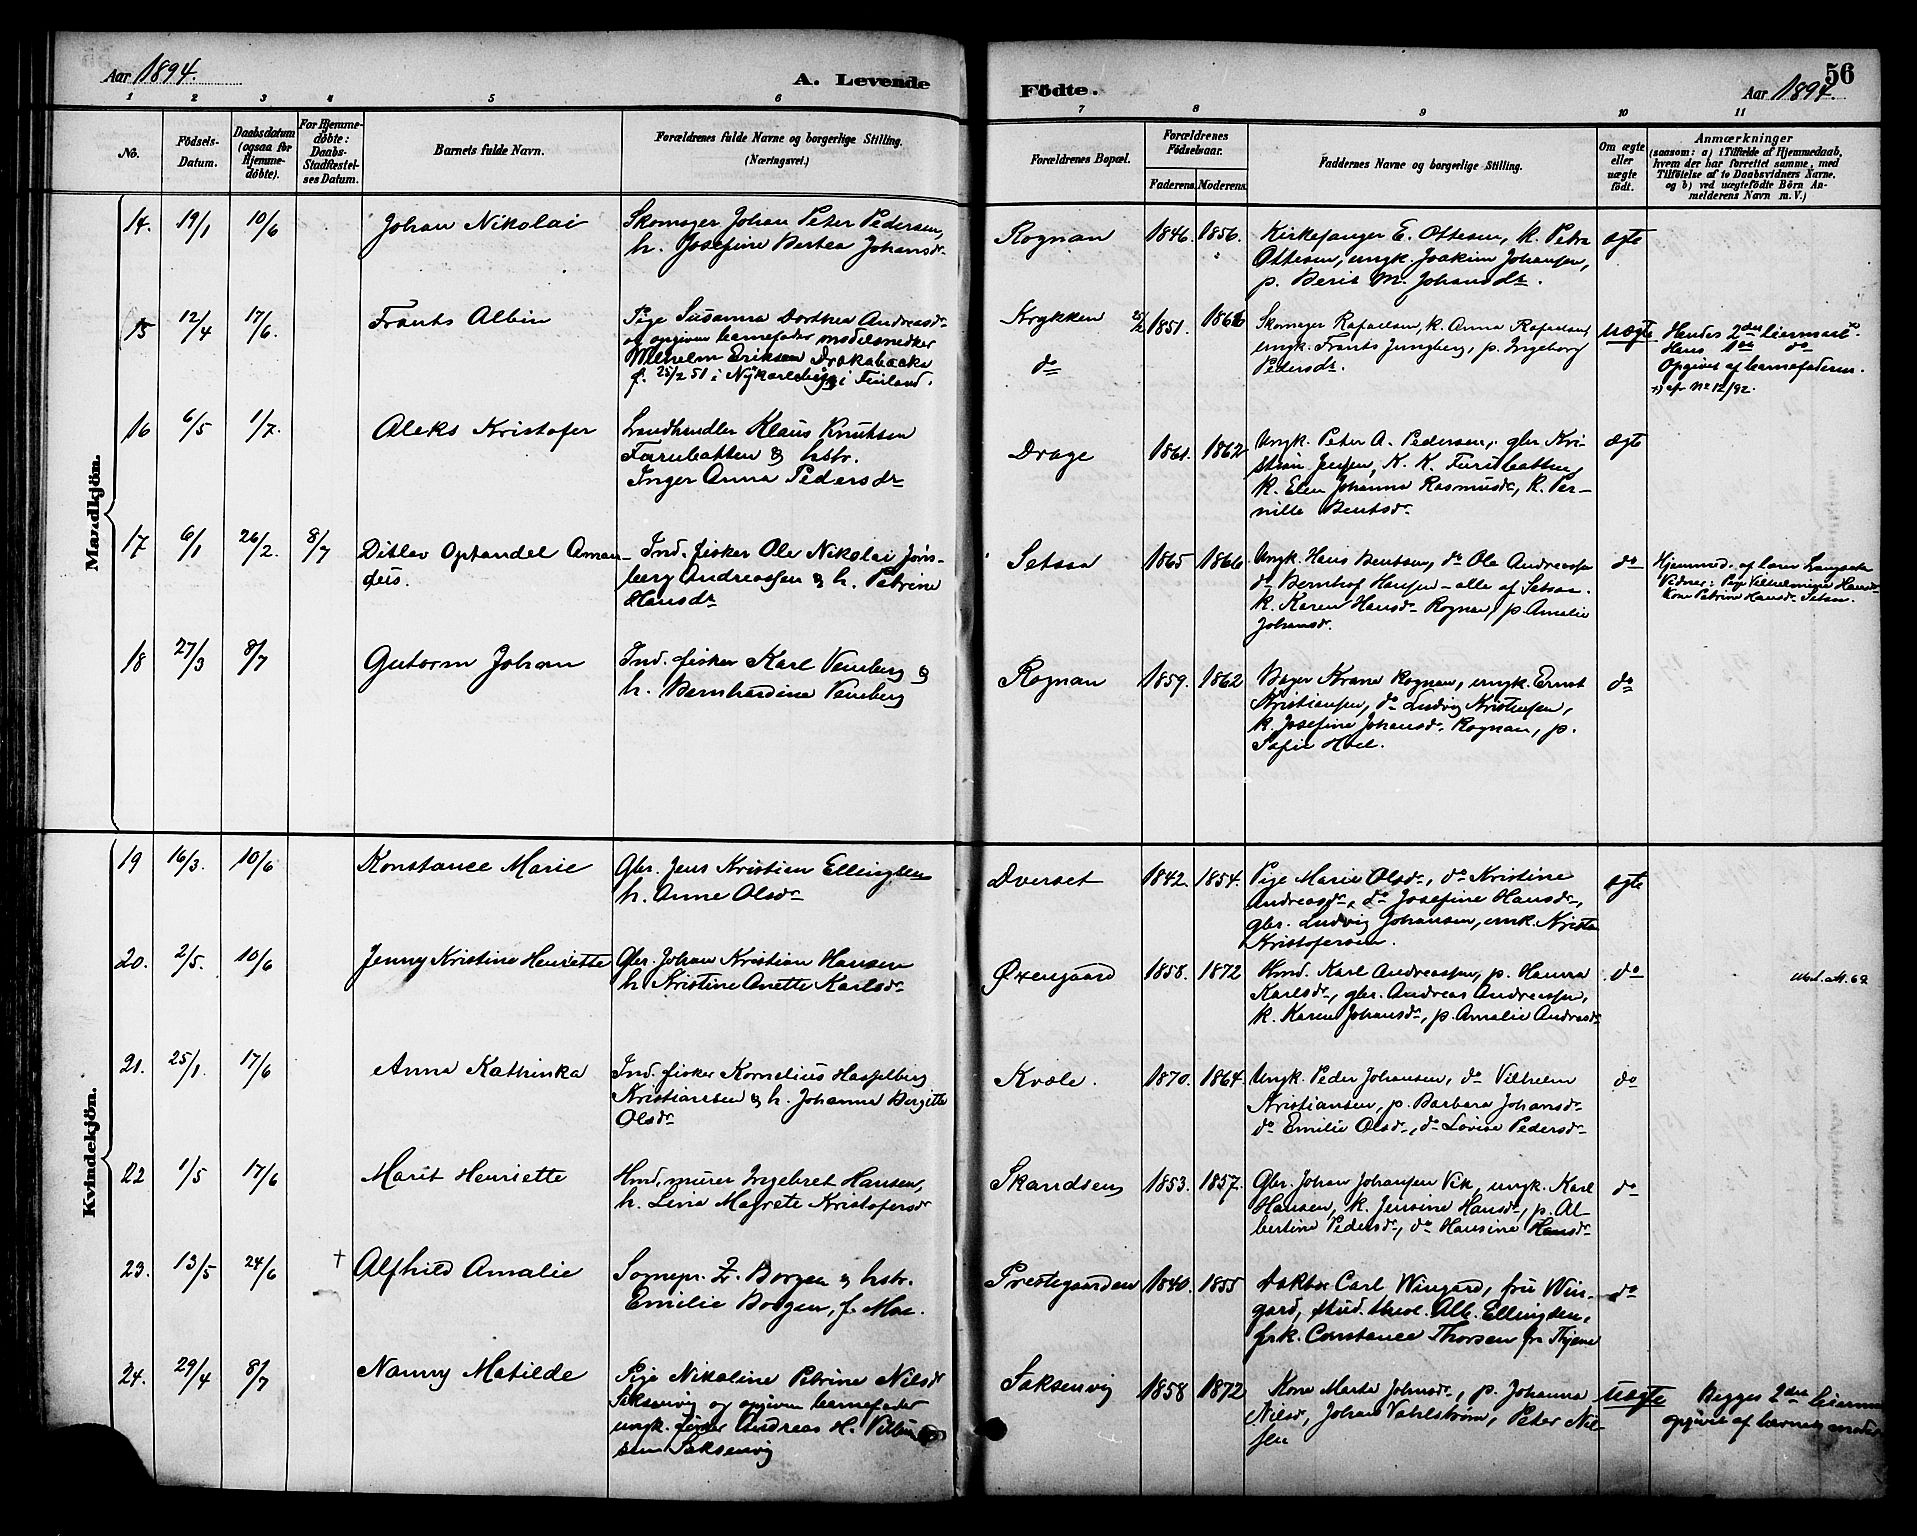 Aar 1894.
A. Levende
Födte.
56
Aar 1894.
1 2 3 4 5 6 7 8 9 10 11
No.
Födsels-
Datum.
Daabsdatum
(ogsaa for
Hjemme-
døbte).
For Hjemme-
døbte:
Daabs-
Stadfæstel-
ses Datum.
Barnets fulde Navn.
Forældrenes fulde Navne og borgerlige Stilling.
(Næringsvei.)
Forældrenes Bopæl.
Forældrenes
Födselsaar.
Faderens. Moderens.
Faddernes Navne og borgerlige Stilling.
Om ægte
eller
uægte
födt.
Anmærkninger
(saasom: a) i Tilfælde af Hjemmedaab,
hvem der har forrettet samme, med
Tilföielse af to Daabsvidners Navne,
og b) ved uægtefödte Börn An-
melderens Navn m. V.)
Mandkjön.
14. 19/1 10/6 Johan Nikolai
Skomager Johan Peter Pedersen,
h. Josefine Bertea Johansdr
Rognan 1846. 1856.
Kirkesanger E. Ottesen, k. Petra
Ottesen, ungk. Joakim Johansen,
p. Berit M. Johansdr.
ægte
15 12/4 17/6. Frants Albin
Pige Susanna Dorthea Andreasdr
og opgiven barnefader modelsnedker
Vilhelm Eriksen Drakabacka
f. 25/2 51 i Nykarleby i Finland.
Krykken
do
25/2 1851. 1866
Skomager Rafaelsen, k. Anna Rafaelsen
ungk. Frants Jungberg, p. Ingeborg
Pedersdr.
uægte
Hendes 2den leiermaal
Hans 1ste do
Opgivet af barnefaderen.
cfr No 12/92.
16 6/5 1/7. Aleks Kristofer
Landhandler Klaus Knutsen
Furubatten & hstr.
Inger Anna Pedersdr
Drage 1861. 1862
Ungk. Peter A. Pedersen, gbr Kri-
stian Jensen, K. K. Furubatten,
k. Elen Johanna Rasmusdr, k. Per-
nille Bentsdr.
ægte
17 6/1 26/2. 8/7 Ditlev Optandel Aman-
deus.
Ind. fisker Ole Nikolai Jöns-
berg Andreassen & h. Petrine
Hansdr
Setsaa 1865 1866
Ungk. Hans Bentsen, do Ole Andreassen
do Bernhof Hansen - alle af Setsaa.
k. Karen Hansdr Rognan, p. Amalie
Johansdr.
do
Hjemmed. af lærer
Vidner: Pige Vilhelmine Hansdr
Kone Petrine Hansdr Setsaa.
18 27/3 8/7 Gutorm Johan
Ind. fisker Karl Venberg &
h. Bernhardine Venberg
Rognan 1859. 1862
Bager Krane Rognan, ungk. Ernst
Kristiansen, do Ludvig Kristensen,
k. Josefine Johansdr Rognan, p.
Sofie Hoel.
do
Kvindekjön.
19 16/3 10/6 Konstance Marie
Gbr. Jens Kristian Ellingsen
h. Anne Olsdr
Dverset 1842. 1854.
Pige Marie Olsdr, do Kristine
Andreasdr, do Josefine Hansdr,
gbr. Ludvig Johansen, umk.
Kristofersen.
ægte
20. 2/5. 10/6 Jenny Kristine Henriette
Gbr. Johan Kristian Hansen
h. Kristine Anette Karlsdr
Øxengaard 1858. 1872
Hmd. Karl Andreassen, p. Hanna
Karlsdr, gbr. Andreas Andreassen,
k. Karen Johansdr, p. Amalie Andreasdr
do
21. 25/1. 17/6 Anna Kathinka
Ind. fisker Kornelius Hasselberg
Kristiansen & h. Johanna Bergitte
Olsdr
Kvæle. 1870. 1864.
Ungk. Peder Johansen, do Vilhelm
Kristiansen, p. Barbara Johansdr
do Emilie Olsdr, do Lovise Pedersdr
do
22 1/5 17/6 Marit Henriette
Hmd. murer Ingebret Hansen,
h. Lina Magrete Kristofersdr
Skandsen 1853. 1857.
Gbr. Johan Johansen Vik, ungk. Karl
Hansen, k. Jensine Hansdr, p. Al
bertine Pedersdr, do Hansine Hansdr
do
23. 13/5 24/6 † Alfhild Amalie
Sognepr. Z. Borgen & hstr.
Emilie Borgen, f. Moe.
Prestegaarden 1840. 1855
Doktor Carl Wingard, fru Win-
gard, stud. theol. Alb. Ellingsen,
frk. Constance Thorsen fr
do
24. 29/4 8/7 Nanny Matilde
Pige Nikoline Petrine Nilsdr
Saksenvig og opgiven barnefader
ungk. fisker Andreas H.
sen Saksenvig
Saksenvig 1858 1872
Kone Marta Johnsdr, p. Johanna
Nilsdr, Johan Vahlstrøm, Peter Nil-
sen
uægte
Begges 2det leierm
opgivet af barnets moder